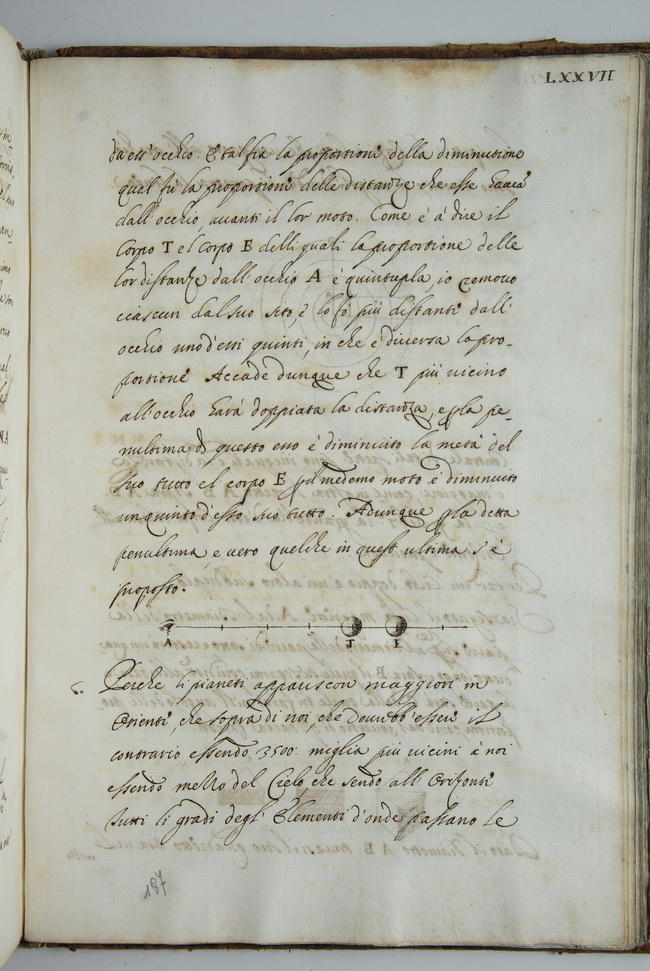 LXXVII
da ess' occhio. E tal fia la proportione della diminutione
qual fù la proportione delle distanze che esse haueà
dall' occhio auanti il lor moto. Come è à dire il
Corpo T e'l corpo E delli quali la proportione delle
lor distanze dall' occhio A è quintupla, io remouo
ciascun dal suo sito, e lo fò più distante dall'
occhio uno d'essi quinti, in che è diuersa la pro-
portione Accade dunque che T più uicino
all' occhio harà doppiata la distanza, e p la pe-
nultima di questo esso è diminuito la metà del
suo tutto el corpo E p il medemo moto è diminuito
un quinto d'esso suo tutto. Adunque p la detta
penultima, e uero quel che in quest' ultima s' è
proposto.
A T E
Perche li pianeti appariscon maggiori in
Oriente, che sopra di noi, che dourebb' essere il
contrario essendo 3500: miglia più uicini à noi
essendo mezzo del Cielo, che sendo all' Orizonte
Tutti li gradi degl' Elementi d'onde passano le
187